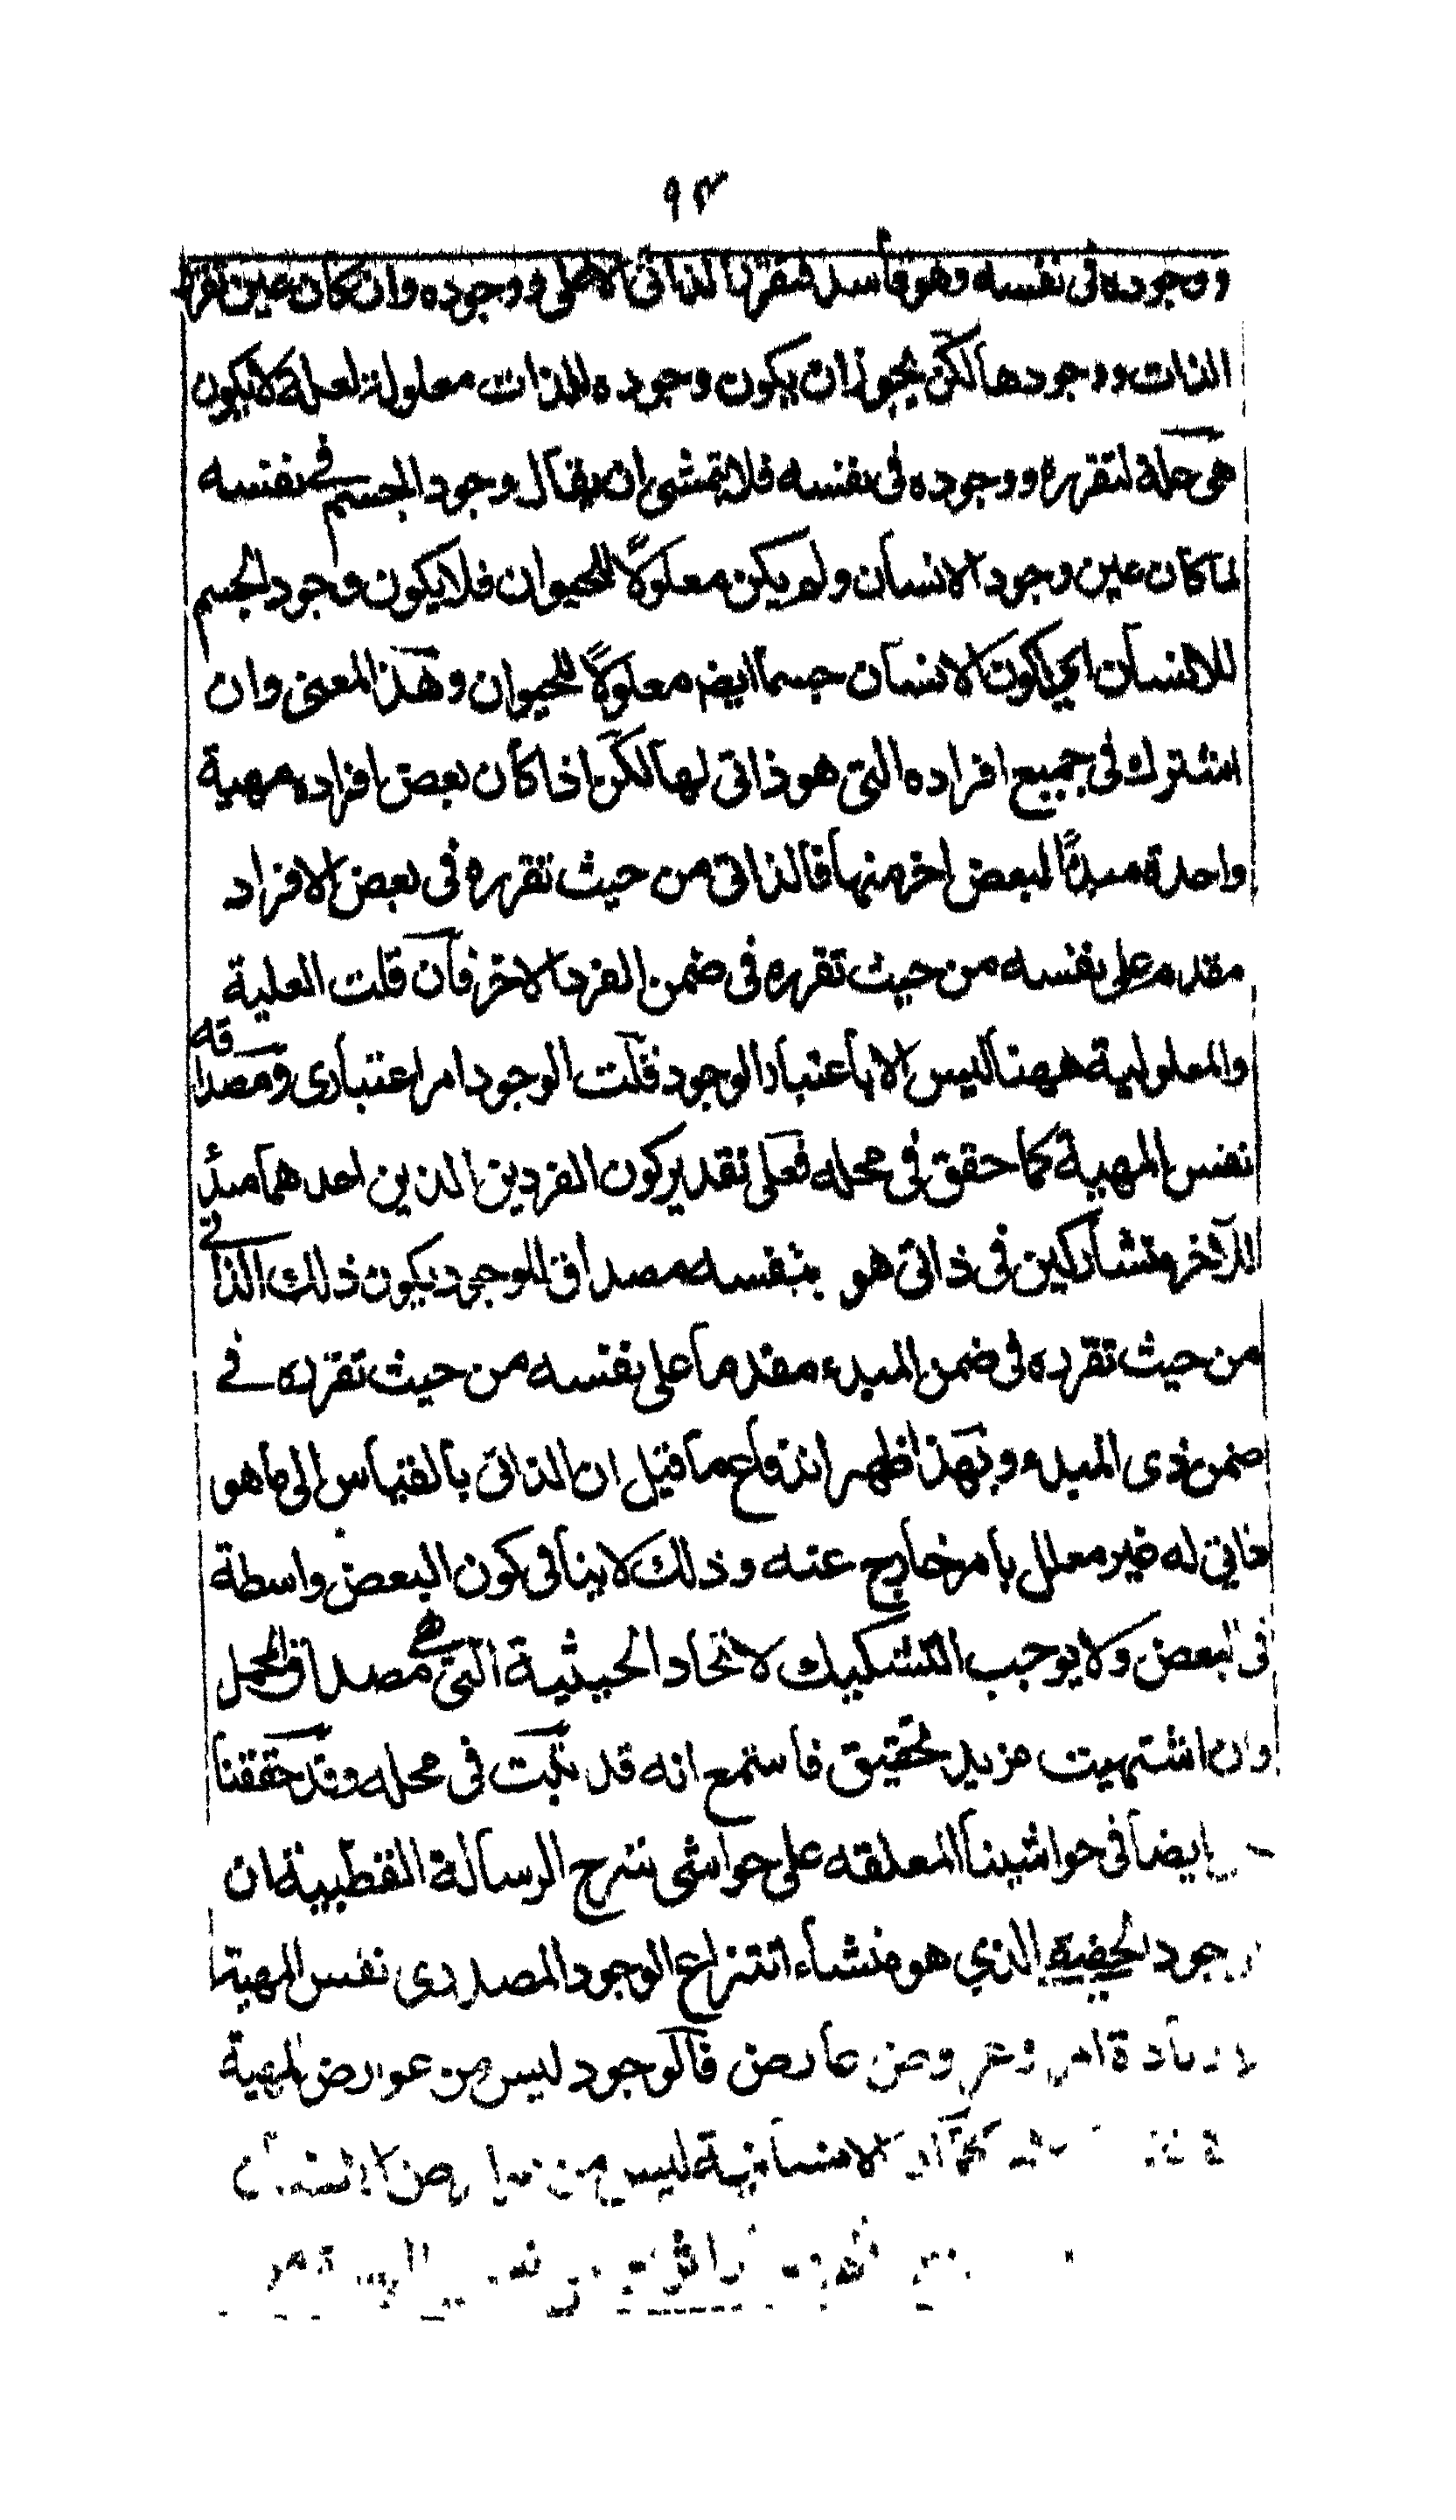 ٩٣
ووجوده فى نفسه وهو فاسد فتقرر الذاتى الاعلى ووجوده وان كان عين تقرر
الذات ووجودها لكن يجوز ان يكون وجوده للذات معلولة لعلة لا يكون
هى علة لتقرره ووجوده فى نفسه فلا يتمشى ان يقال وجود الجسم فى نفسه
لما كان عين وجود الانسان ولم يكن معلولًا للحيوان فلا يكون وجود الجسم
للانسان اى كون الانسان جسما ايضا معلولًا للحيوان وهذا المعنى وان
اشترك فى جميع افراده التى هو ذاتى لها لكن اذا كان بعض افراده مهية
واحدة مبدأً لبعض اخر منها فالذاتى من حيث تقرره فى بعض الافراد
مقدم على نفسه من حيث تقرره فى ضمن الفرد الاخر فان قلت العلية
والمعلولية ههنا ليس الا باعتبار الوجود قلت الوجود امر اعتبارى ومصداقه
نفس المهية كما حقق فى محله فعلى تقدير كون الفردين الذين احدهما مبدأ
للآخر متشاركين فى ذاتى هو بنفسه مصداق للوجود يكون ذلك الذاتى
من حيث تقرره فى ضمن المبدء مقدما على نفسه من حيث تقرره فى
ضمن ذى المبدء وبهذا ظهر اندفاع ما قيل ان الذاتى بالقياس الى ما هو
ذاتى له غير معلل بامر خارج عنه وذلك لا ينافى كون البعض واسطة
فى البعض ولا يوجب التشكيك لاتحاد الحيثية التى هى مصداق الحمل
وان اشتهيت مزيد تحقيق فاستمع انه قد ثبت فى محله وقد حققنا
ايضا فى حواشينا المعلقه على حواشى شرح الرسالة القطبية ان
وجود الحقيقة الذي هو منشاء انتزاع الوجود المصدرى نفس المهية
لا زيادة امر وعروض عارض فالوجود ليس من عوارض المهية
كما ان الانسانية ليس من عوارض الانسان